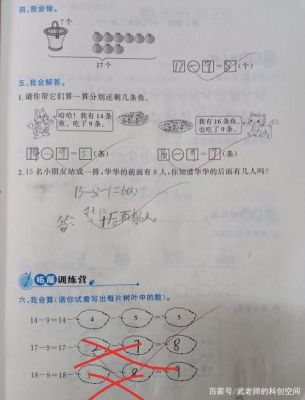 四、我会做。
?个
17个
17-9=8(个)
五、我会解答。
1.请你帮它们算一算分别还剩几条鱼。
哈哈!我有14条鱼,吃了9条。
我有16条鱼,也吃了9条。
14-9=5(条)
16-9=7(条)
2.15名小朋友站成一排,华华的前面有8人,你知道华华的后面有几人吗?
15-8-1=6(人)
答:华华后面有6人。
拓展训练营
六、我会算(请你试着写出每片树叶中的数)。
14-9=14-4-5=5
17-9=17-2-7=8
18-9=18-7-8=9
百家号/武老师的科创空间